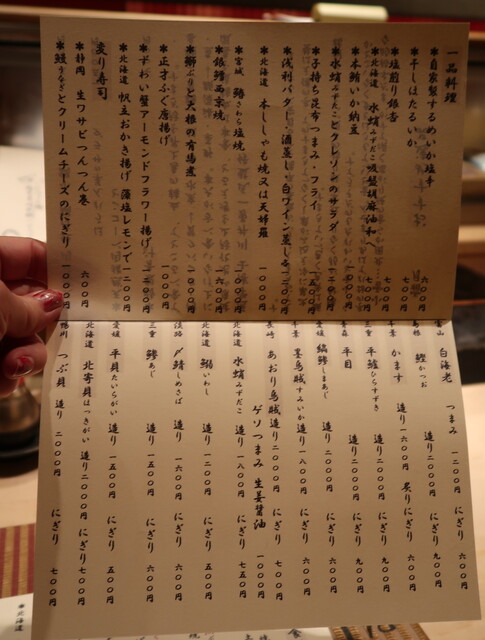 一品料理
＊自家製するめいか塩辛 六〇〇円
＊干しほたるいか 七〇〇円
＊塩煎り銀杏
＊北海道 水蛸みずだこ吸盤胡麻油和へ
＊本鮪いか納豆
＊水蛸みずだことクレソンのサラダ
＊子持ち昆布つまみ・フライ
＊浅利バター・酒蒸し・白ワイン蒸し各一二〇〇円
＊北海道 本ししゃも焼又は天婦羅 一〇〇〇円
＊宮城 鰆さわら塩焼
＊銀鱈西京焼
＊鰤ぶりと大根の有馬煮
＊正才ふぐ唐揚げ
＊ずわい蟹アーモンドフラワー揚げ
＊北海道 帆立おかき揚げ 藻塩レモンで
変り寿司
＊静岡 生ワサビつんつん巻 六〇〇円
＊鰻うなぎとクリームチーズのにぎり 一〇〇〇円
富山 白海老 つまみ 一二〇〇円 にぎり 六〇〇円
鰹かつお 造り 二〇〇〇円 にぎり 九〇〇円
千葉 かます 造り 一六〇〇円 炙りにぎり 六〇〇円
三重 平鱸ひらすずき 造り 二〇〇〇円 にぎり 九〇〇円
青森 平目 造り 二〇〇〇円 にぎり 九〇〇円
愛媛 縞鯵しまあじ 造り 二〇〇〇円 にぎり 六〇〇円
墨烏賊すみいか 造り 一八〇〇円 にぎり 六〇〇円
長崎 あおり烏賊 造り 二〇〇〇円 にぎり 七〇〇円
ゲソつまみ 生姜醤油 一〇〇〇円
北海道 水蛸みずだこ 造り 一八〇〇円 にぎり 七五〇円
北海道 鰯いわし 造り 一二〇〇円 にぎり 五〇〇円
淡路 〆鯖しめさば 造り 一六〇〇円 にぎり 六〇〇円
三重 鯵あじ 造り 一五〇〇円 にぎり 六〇〇円
愛媛 平貝たいらがい 造り 一五〇〇円 にぎり 五〇〇円
北海道 北寄貝ほっきがい 造り 二〇〇〇円 にぎり 七〇〇円
つぶ貝 造り 二〇〇〇円 にぎり 七〇〇円
＊北海道